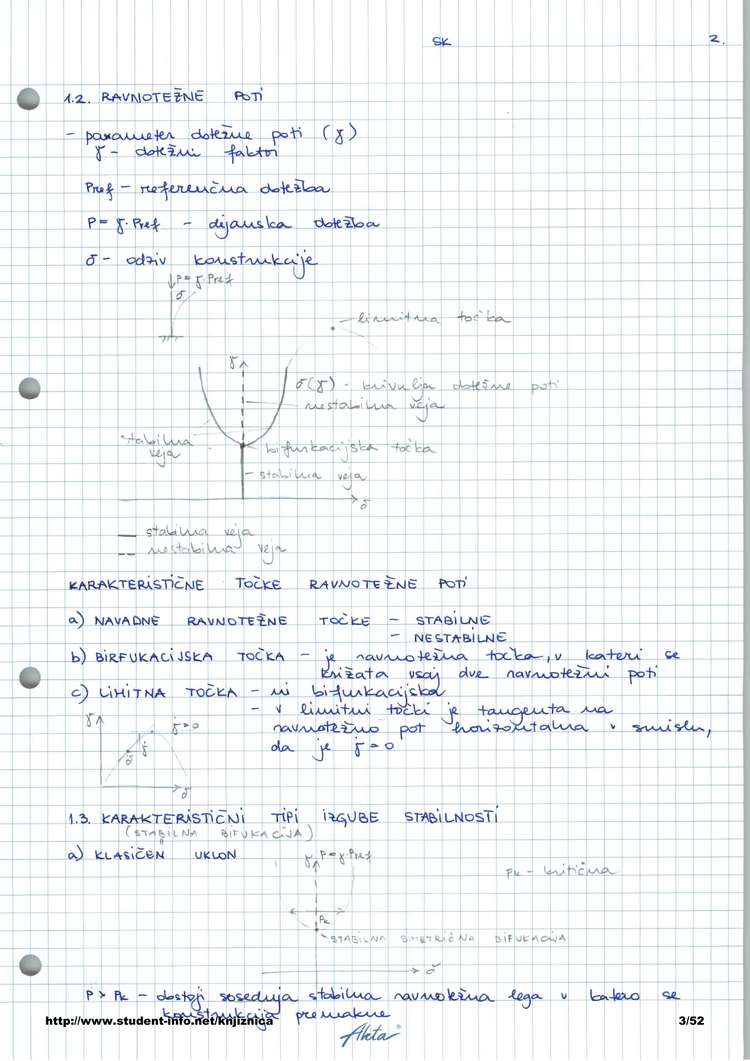 SK 2.
1.2. RAVNOTEŽNE POTI
- parameter dotežne poti (γ)
γ - dotežni faktor
Pref - referenčna dotežba
P = γ · Pref - dejanska dotežba
σ - odziv konstrukcije
P = γ · Pref
σ
limitna točka
γ
σ(γ) - krivulja dotežne poti
nestabilna veja
stabilna
veja
bifurkacijska točka
stabilna veja
σ
stabilna veja
nestabilna veja
KARAKTERISTIČNE TOČKE RAVNOTEŽNE POTI
a) NAVADNE RAVNOTEŽNE TOČKE - STABILNE
- NESTABILNE
b) BIRFUKACIJSKA TOČKA - je ravnotežna točka, v kateri se
križata vsaj dve ravnotežni poti
c) LIMITNA TOČKA - ni bifurkacijska
- v limitni točki je tangenta na
ravnotežno pot horizontalna v smislu,
da je γ̇ = 0
γ
γ̇ = 0
γ̇
σ̇
σ
1.3. KARAKTERISTIČNI TIPI IZGUBE STABILNOSTI
(STABILNA BIFUKACIJA)
a) KLASIČEN UKLON
γ, P = γ · Pref
Pk - kritična
Pk
STABILNA SIMETRIČNA BIFUKACIJA
σ
P > Pk - dostoji sosednja stabilna ravnotežna lega v katero se
konstrukcija premakne
http://www.student-info.net/knjiznica
3/52
Akta